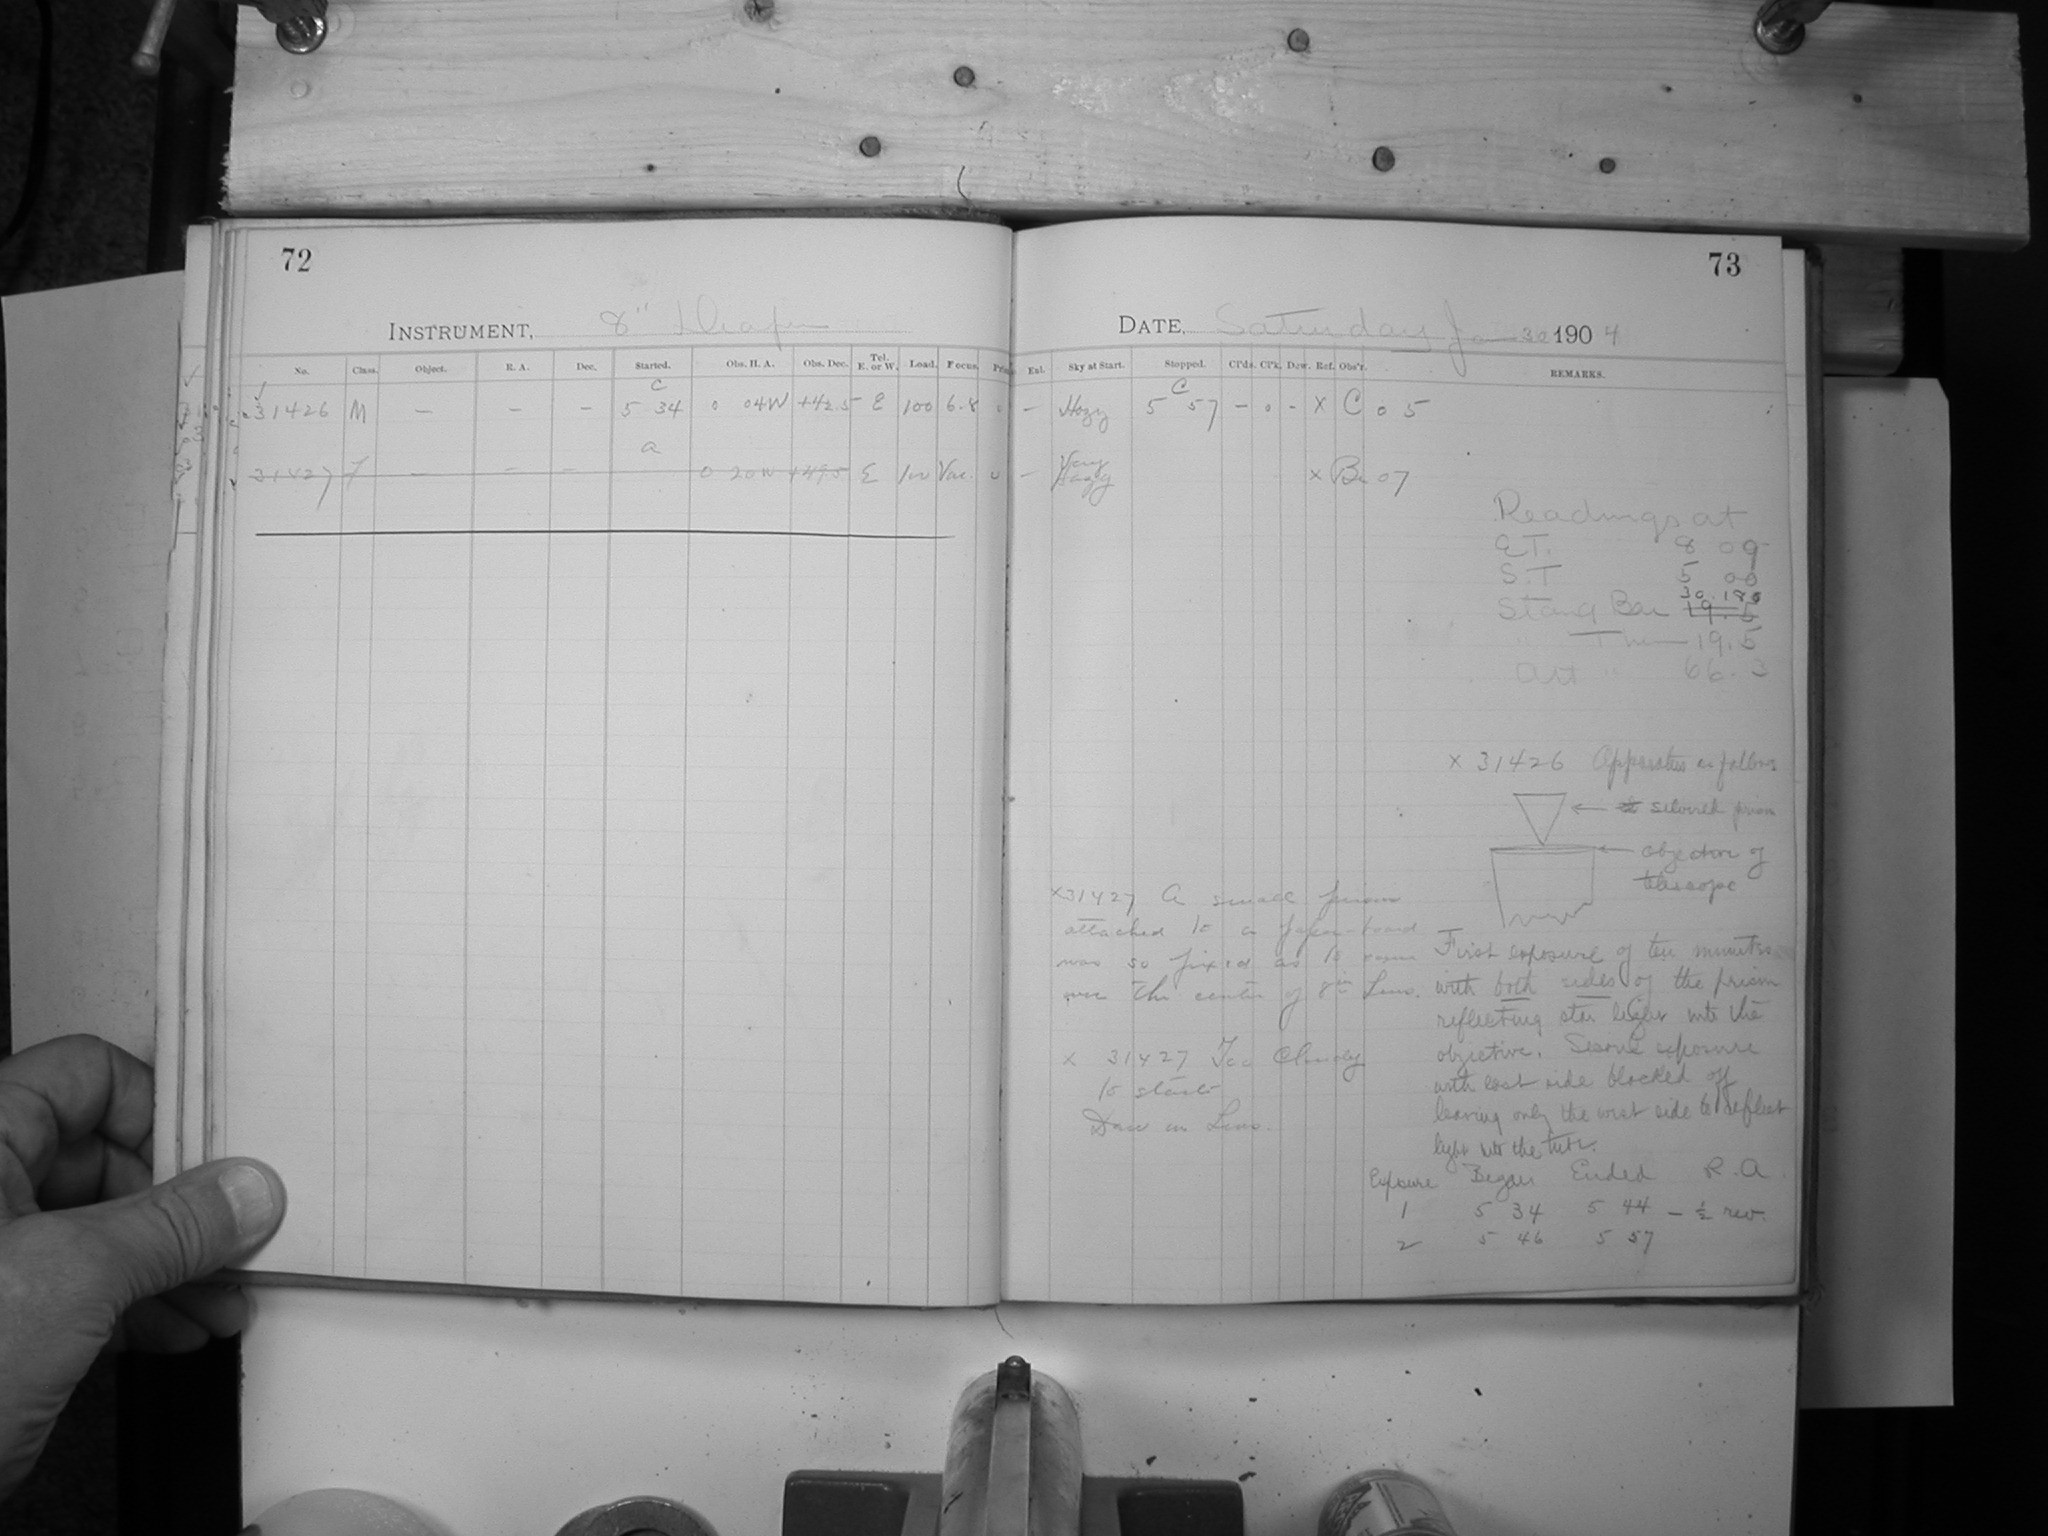 72
INSTRUMENT, 8" Draper
No. Class. Object. R. A. Dec. Started. Obs. H. A. Obs. Dec. Tel. E. or W. Load. Focus.
C
31426 M — — — 5 34 0 04W +42.5 E 100 6.8 0
a
31427 — — — 0 20W +49.5 E 100 Vac. 0
73
DATE, Saturday Jan 30 1904
Ext. Sky at Start. Stopped. Cl'ds. Cl'k. Dew. Ref. Obs'r. REMARKS.
C
— Hazy 5 57 — 0 - X C 0 5
— Very Hazy X 07
Readings at
E.T. 8 09
S.T 5 00
30.180
Stand Bar 19.5
" Ther 19.5
Att " 66.3
X 31426 Apparatus as follows
silvered prism
objective of
telescope
X31427 A small prism
attached to a paper-board
was so fixed as to come
over the center of 8in Lens.
X 31427 Too Cloudy
to start
Dew on Lens.
First exposure of ten minutes
with both sides of the prism
reflecting star light into the
objective. Second exposure
with east side blocked off
leaving only the west side to reflect
light into the tube.
Exposure Began Ended R.A.
1 5 34 5 44 — ½ rev.
2 5 46 5 57